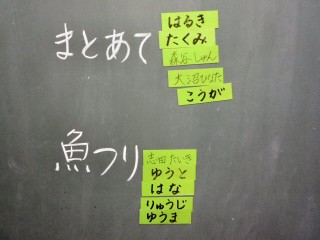 まとあて
はるき
たくみ
森谷しゅん
大沼ひなた
こうが
魚つり
志田たいき
ゆうと
はな
りゅうじ
ゆうま